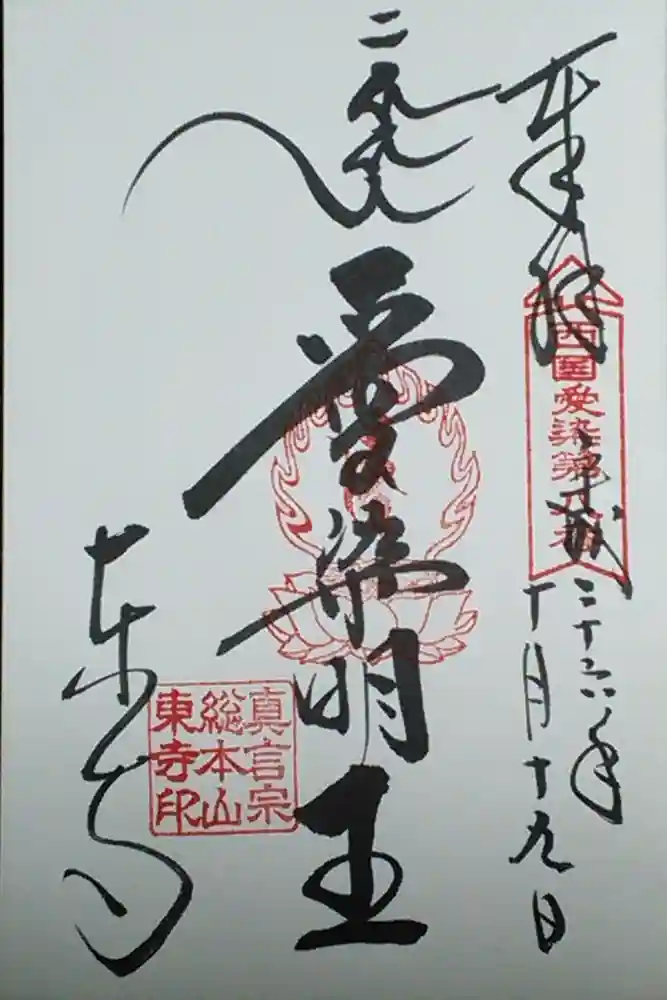 奉拝
平成二十六年
十月十九日
西国愛染第八番
愛染明王
東寺
真言宗
総本山
東寺印